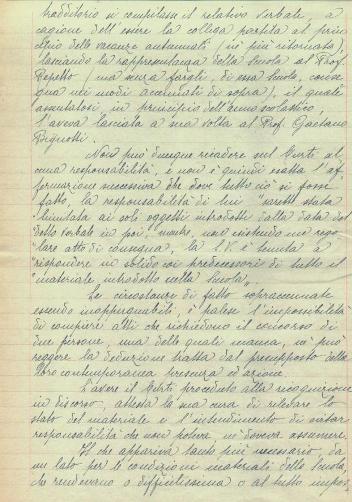 traddittorio si compilasse il relativo verbale a
cagione dell'essere la collega partita al prin-
cipio delle vacanze autunnali (nè più ritornata),
lasciando la rappresentanza della Scuola al Prof.
Repetto (ma senza fargli, di essa Scuola, conse-
gua nei modi accennati di sopra), il quale
assentatosi, in principio dell'anno scolastico,
l'aveva lasciata a sua volta al Prof. Gaetano
Bignotti.
Non può dunque ricadere sul Curti al-
cuna responsabilità, e non è quindi esatta l'af-
fermazione successiva che dove tutto ciò si fosse
fatto, la responsabilità di lui "sarebbe stata
limitata ai soli oggetti introdotti dalla data del
detto verbale in poi, mentre, non esistendo un rego-
lare atto di consegna, la S.V. è tenuta a
rispondere in solido coi predecessori di tutto il
materiale introdotto nella Scuola".
Le circostanze di fatto sopraccennate
essendo inoppugnabili, è palese l'impossibilità
di compiere atti che richiedono il concorso di
due persone, una delle quali manca, nè può
reggere la deduzione tratta dal presupposto della
loro contemporanea presenza ed azione.
L'avere il Curti proceduto alla ricognizione
in discorso, attesta la sua cura di rilevare lo
stato del materiale e l'intendimento di evitar
responsabilità che non poteva, nè doveva assumere.
Il che appariva tanto più necessario, da
un lato per le condizioni materiali della Scuola,
che rendevano o difficilissima o al tutto impos-